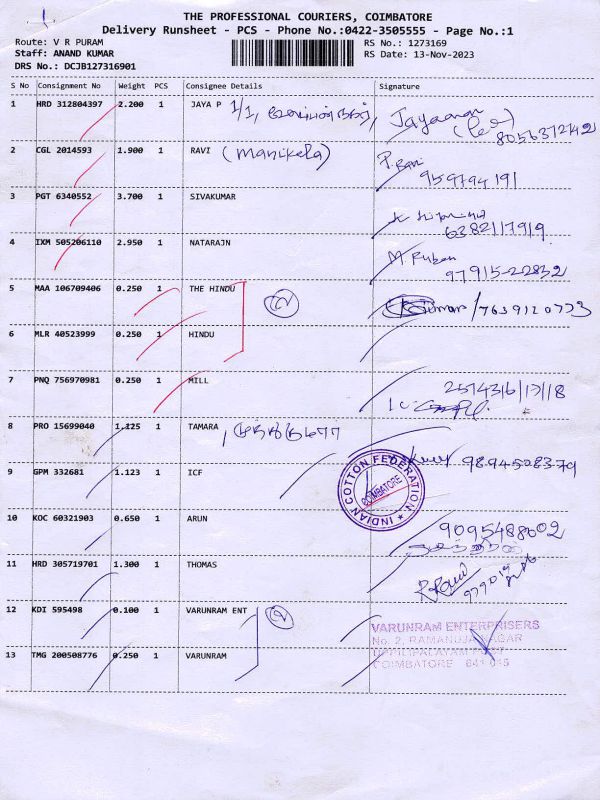 THE PROFESSIONAL COURIERS, COIMBATORE
Delivery Runsheet - PCS - Phone No.:0422-3505555 - Page No.:1
Route: V R PURAM
RS No.: 1273169
Staff: ANAND KUMAR
RS Date: 13-Nov-2023
DRS No.: DCJB127316901
S No Consignment No Weight PCS Consignee Details Signature
1 HRD 312804397 2.200 1 JAYA P 1/1,
8056372742
2 CGL 2014593 1.900 1 RAVI (Manikela) P. Ravi
959794191
3 PGT 6340552 3.700 1 SIVAKUMAR
6382117919
4 IXM 505206110 2.950 1 NATARAJN M Ruban
97915-22832
5 MAA 106709406 0.250 1 THE HINDU /7639120773
6 MLR 40523999 0.250 1 HINDU
7 PNQ 756970981 0.250 1 MILL
8 PRO 15699040 1.125 1 TAMARA
9 GPM 332681 1.123 1 ICF 9894508379
INDIAN COTTON FEDERATION
COIMBATORE
10 KOC 60321903 0.650 1 ARUN 9095488602
11 HRD 305719701 1.300 1 THOMAS
12 KDI 595498 0.100 1 VARUNRAM ENT
VARUNRAM ENTERPRISERS
No. 2, RAMANUJA NAGAR
UPPILIPALAYAM POST
13 TMG 200508776 0.250 1 VARUNRAM
COIMBATORE 641 015